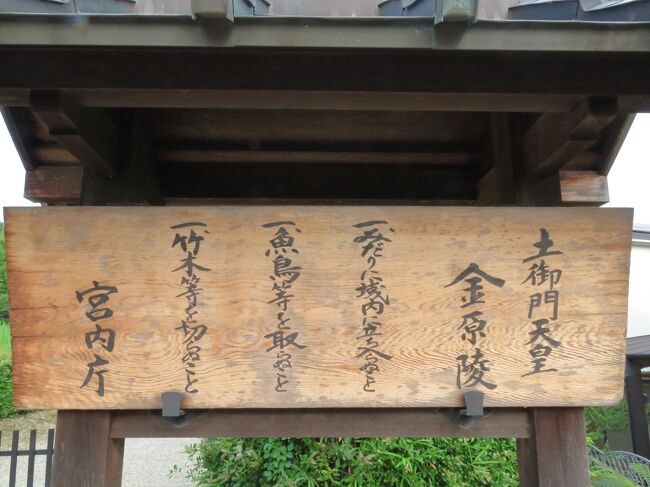 土御門天皇
金原陵
一、みだりに域内に立入らぬこと
一、魚鳥等を取らぬこと
一、竹木等を切らぬこと
宮内庁